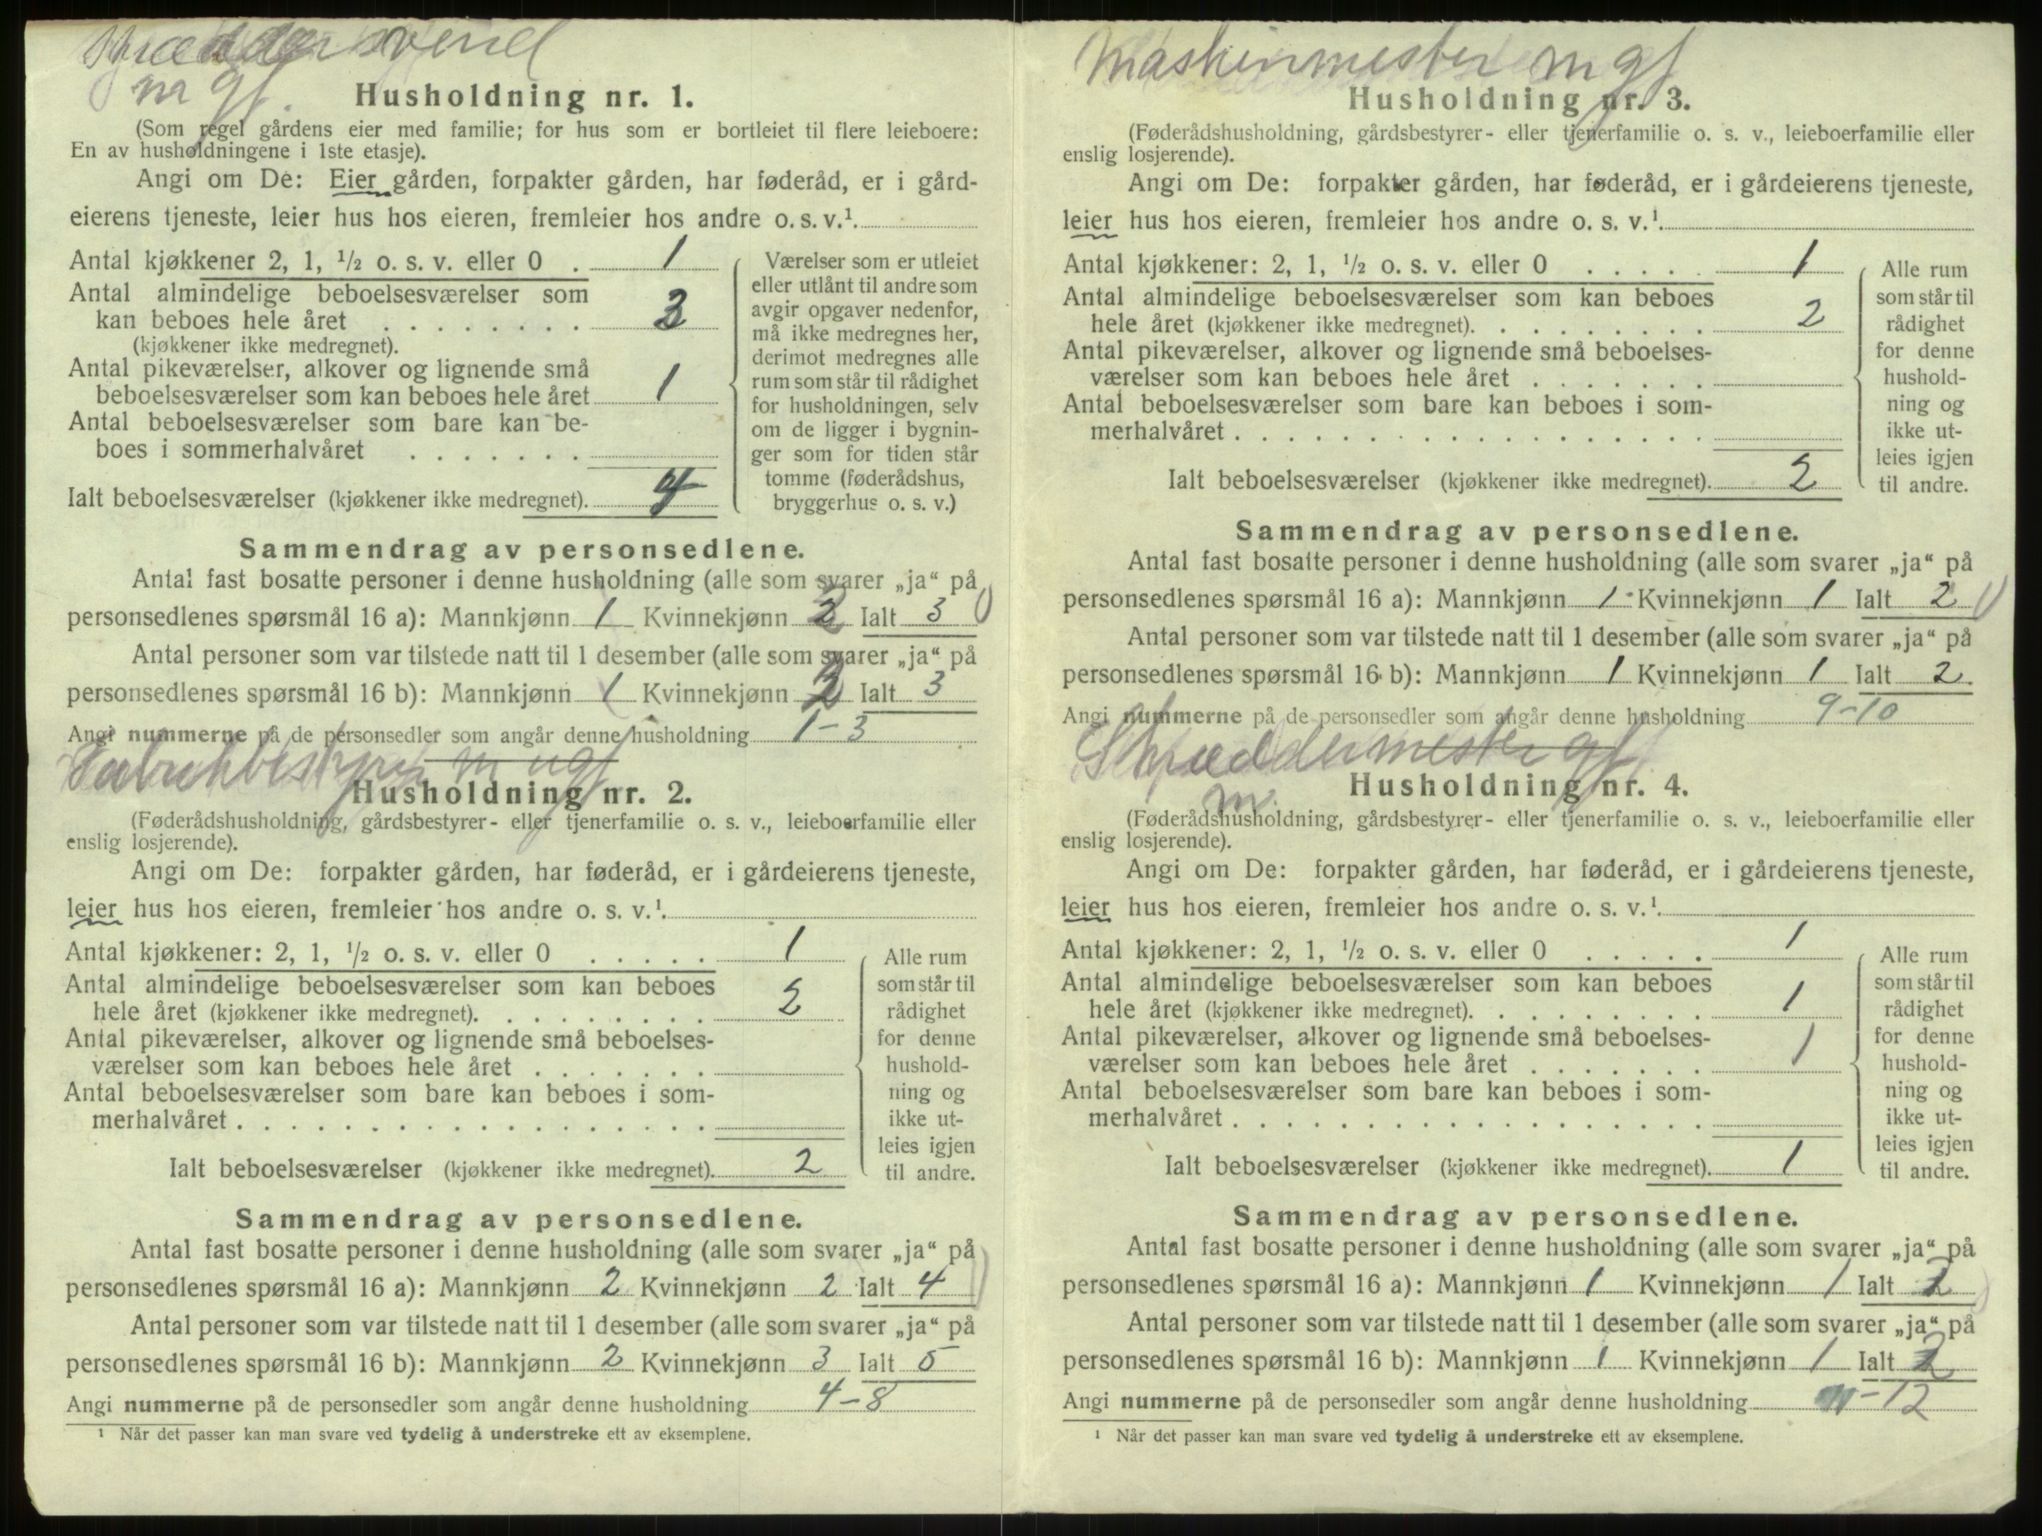 Skræddersvend
m gf.
Husholdning nr. 1.
(Som regel gårdens eier med familie; for hus som er bortleiet til flere leieboere:
En av husholdningene i 1ste etasje).
Angi om De: Eier gården, forpakter gården, har føderåd, er i gård-
eierens tjeneste, leier hus hos eieren, fremleier hos andre o. s. v.¹.
Antal kjøkkener 2, 1, ½ o. s. v. eller 0 . 1
Antal almindelige beboelsesværelser som
kan beboes hele året . . . . . . . . 3
(kjøkkener ikke medregnet).
Antal pikeværelser, alkover og lignende små
beboelsesværelser som kan beboes hele året 1
Antal beboelsesværelser som bare kan be-
boes i sommerhalvåret . . . . . . .
Ialt beboelsesværelser (kjøkkener ikke medregnet). 4
Værelser som er utleiet
eller utlånt til andre som
avgir opgaver nedenfor,
må ikke medregnes her,
derimot medregnes alle
rum som står til rådighet
for husholdningen, selv
om de ligger i bygnin-
ger som for tiden står
tomme (føderådshus,
bryggerhus o. s. v.)
Sammendrag av personsedlene.
Antal fast bosatte personer i denne husholdning (alle som svarer „ja“ på
personsedlenes spørsmål 16 a): Mannkjønn 1 Kvinnekjønn 2 Ialt 3
Antal personer som var tilstede natt til 1 desember (alle som svarer „ja“ på
personsedlenes spørsmål 16 b): Mannkjønn 1 Kvinnekjønn 2 Ialt 3
Angi nummerne på de personsedler som angår denne husholdning 1-3
Fabrikbestyrer m ugf
Husholdning nr. 2.
(Føderådshusholdning, gårdsbestyrer- eller tjenerfamilie o. s. v., leieboerfamilie eller
enslig losjerende).
Angi om De: forpakter gården, har føderåd, er i gårdeierens tjeneste,
leier hus hos eieren, fremleier hos andre o. s. v.¹.
Antal kjøkkener: 2, 1, ½ o. s. v. eller 0 . . . . . 1
Antal almindelige beboelsesværelser som kan beboes
hele året (kjøkkener ikke medregnet). . . . . . . . . 2
Antal pikeværelser, alkover og lignende små beboelses-
værelser som kan beboes hele året . . . . . . .
Antal beboelsesværelser som bare kan beboes i som-
merhalvåret . . . . . . . . . . . . . . . . . .
Ialt beboelsesværelser (kjøkkener ikke medregnet). 2
Alle rum
som står til
rådighet
for denne
hushold-
ning og
ikke ut-
leies igjen
til andre.
Sammendrag av personsedlene.
Antal fast bosatte personer i denne husholdning (alle som svarer „ja“ på
personsedlenes spørsmål 16 a): Mannkjønn 2 Kvinnekjønn 2 Ialt 4
Antal personer som var tilstede natt til 1 desember (alle som svarer „ja“ på
personsedlenes spørsmål 16 b): Mannkjønn 2 Kvinnekjønn 3 Ialt 5
Angi nummerne på de personsedler som angår denne husholdning 4-8
¹ Når det passer kan man svare ved tydelig å understreke ett av eksemplene.
Maskinmester m gf
Husholdning nr. 3.
(Føderådshusholdning, gårdsbestyrer- eller tjenerfamilie o. s. v., leieboerfamilie eller
enslig losjerende).
Angi om De: forpakter gården, har føderåd, er i gårdeierens tjeneste,
leier hus hos eieren, fremleier hos andre o. s. v.¹.
Antal kjøkkener: 2, 1, ½ o. s. v. eller 0 . . . . . 1
Antal almindelige beboelsesværelser som kan beboes
hele året (kjøkkener ikke medregnet). . . . . . . . . 2
Antal pikeværelser, alkover og lignende små beboelses-
værelser som kan beboes hele året . . . . . . .
Antal beboelsesværelser som bare kan beboes i som-
merhalvåret . . . . . . . . . . . . . . . . . .
Ialt beboelsesværelser (kjøkkener ikke medregnet). 2
Alle rum
som står til
rådighet
for denne
hushold-
ning og
ikke ut-
leies igjen
til andre.
Sammendrag av personsedlene.
Antal fast bosatte personer i denne husholdning (alle som svarer „ja“ på
personsedlenes spørsmål 16 a): Mannkjønn 1 Kvinnekjønn 1 Ialt 2
Antal personer som var tilstede natt til 1 desember (alle som svarer „ja“ på
personsedlenes spørsmål 16 b): Mannkjønn 1 Kvinnekjønn 1 Ialt 2
Angi nummerne på de personsedler som angår denne husholdning 9-10
Skræddermester gf
m.
Husholdning nr. 4.
(Føderådshusholdning, gårdsbestyrer- eller tjenerfamilie o. s. v., leieboerfamilie eller
enslig losjerende).
Angi om De: forpakter gården, har føderåd, er i gårdeierens tjeneste,
leier hus hos eieren, fremleier hos andre o. s. v.¹.
Antal kjøkkener: 2, 1, ½ o. s. v. eller 0 . . . . . 1
Antal almindelige beboelsesværelser som kan beboes
hele året (kjøkkener ikke medregnet). . . . . . . . . 1
Antal pikeværelser, alkover og lignende små beboelses-
værelser som kan beboes hele året . . . . . . . 1
Antal beboelsesværelser som bare kan beboes i som-
merhalvåret . . . . . . . . . . . . . . . . . .
Ialt beboelsesværelser (kjøkkener ikke medregnet). 1
Alle rum
som står til
rådighet
for denne
hushold-
ning og
ikke ut-
leies igjen
til andre.
Sammendrag av personsedlene.
Antal fast bosatte personer i denne husholdning (alle som svarer „ja“ på
personsedlenes spørsmål 16 a): Mannkjønn 1 Kvinnekjønn 1 Ialt 2
Antal personer som var tilstede natt til 1 desember (alle som svarer „ja“ på
personsedlenes spørsmål 16 b): Mannkjønn 1 Kvinnekjønn 1 Ialt 2
Angi nummerne på de personsedler som angår denne husholdning 11-12
¹ Når det passer kan man svare ved tydelig å understreke ett av eksemplene.